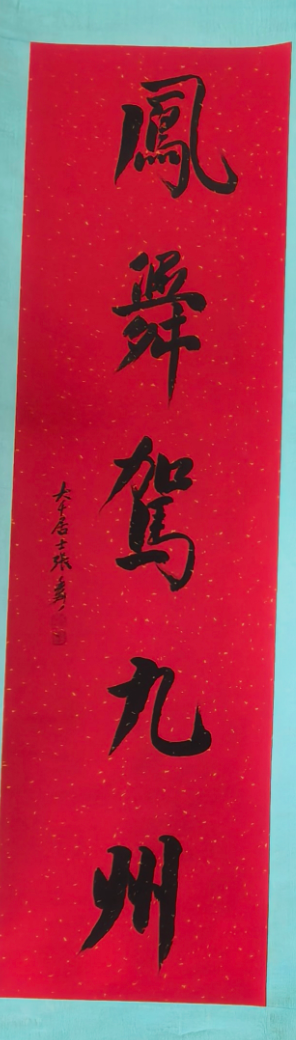 鳳舞駕九州
大千居士張爰